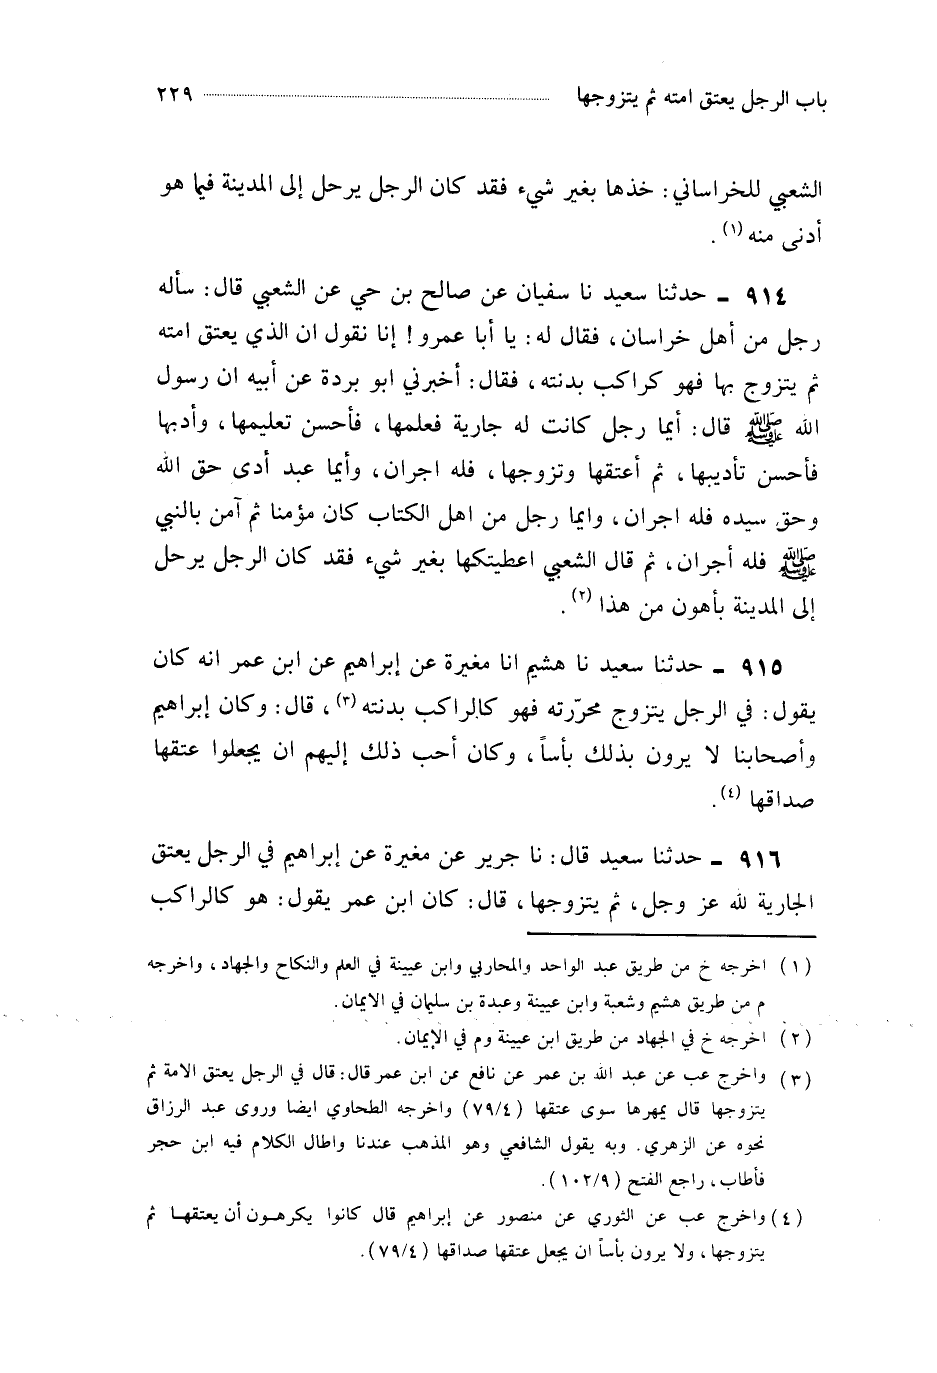 باب الرجل يعتق امته ثم يتزوجها ................ ٢٢٩
الشعبي للخراساني: خذها بغير شيء فقد كان الرجل يرحل إلى المدينة فيما هو
أدنى منه (١).
٩١٤ ـ حدثنا سعيد نا سفيان عن صالح بن حي عن الشعبي قال: سأله
رجل من أهل خراسان، فقال له: يا أبا عمرو! إنا نقول ان الذي يعتق امته
ثم يتزوج بها فهو كراكب بدنته، فقال: أخبرني ابو بردة عن أبيه ان رسول
الله ﷺ قال: أيما رجل كانت له جارية فعلمها، فأحسن تعليمها، وأدبها
فأحسن تأديبها، ثم أعتقها وتزوجها، فله اجران، وأيما عبد أدى حق الله
وحق سيده فله اجران، وايما رجل من اهل الكتاب كان مؤمنا ثم آمن بالنبي
ﷺ فله أجران، ثم قال الشعبي اعطيتكها بغير شيء فقد كان الرجل يرحل
إلى المدينة بأهون من هذا (٢).
٩١٥ ـ حدثنا سعيد نا هشيم انا مغيرة عن إبراهيم عن ابن عمر انه كان
يقول: في الرجل يتزوج محرّرته فهو كالراكب بدنته (٣)، قال: وكان إبراهيم
وأصحابنا لا يرون بذلك بأساً، وكان أحب ذلك إليهم ان يجعلوا عتقها
صداقها (٤).
٩١٦ ـ حدثنا سعيد قال: نا جرير عن مغيرة عن إبراهيم في الرجل يعتق
الجارية لله عز وجل، ثم يتزوجها، قال: كان ابن عمر يقول: هو كالراكب
(١) اخرجه خ من طريق عبد الواحد والمحاربي وابن عيينة في العلم والنكاح والجهاد، واخرجه
م من طريق هشيم وشعبة وابن عيينة وعبدة بن سليمان في الايمان.
(٢) اخرجه خ في الجهاد من طريق ابن عيينة وم في الإيمان.
(٣) واخرج عب عن عبد الله بن عمر عن نافع عن ابن عمر قال: قال في الرجل يعتق الامة ثم
يتزوجها قال يمهرها سوى عتقها (٧٩/٤) واخرجه الطحاوي ايضا وروى عبد الرزاق
نحوه عن الزهري. وبه يقول الشافعي وهو المذهب عندنا واطال الكلام فيه ابن حجر
فأطاب، راجع الفتح (١٠٢/٩).
(٤) واخرج عب عن الثوري عن منصور عن إبراهيم قال كانوا يكرهون أن يعتقها ثم
يتزوجها، ولا يرون بأساً ان يجعل عتقها صداقها (٧٩/٤).